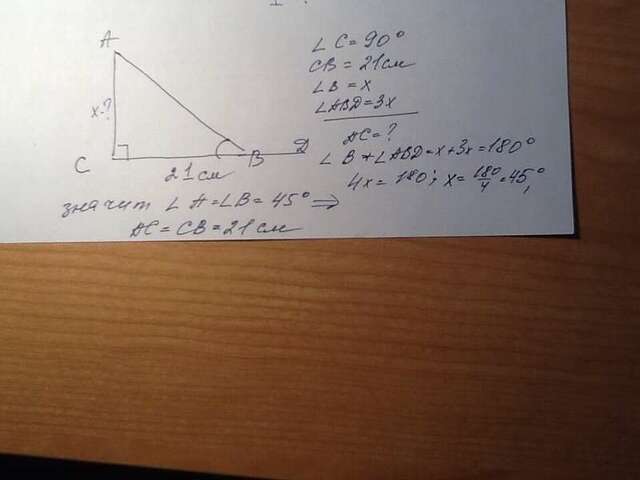 A
x-?
C
21см
B
D
∠ C = 90°
CB = 21см
∠ B = x
∠ ABD = 3x
AC = ?
∠ B + ∠ ABD = x + 3x = 180°
4x = 180; x = 180/4 = 45,°
значит ∠ A = ∠ B = 45° ⇒
AC = CB = 21 см